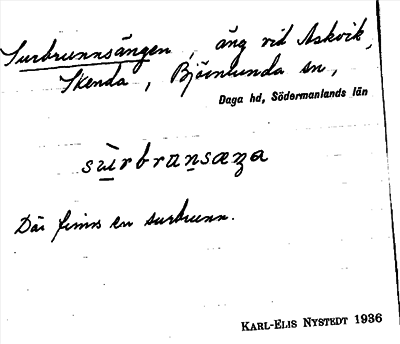 Surbrunnsängen, äng vid Askvik,
Skenda, Björnlunda sn,
Daga hd, Södermanlands län
sùrbrunsæŋa
Där finns en surbrunn.
KARL-ELIS NYSTEDT 1936